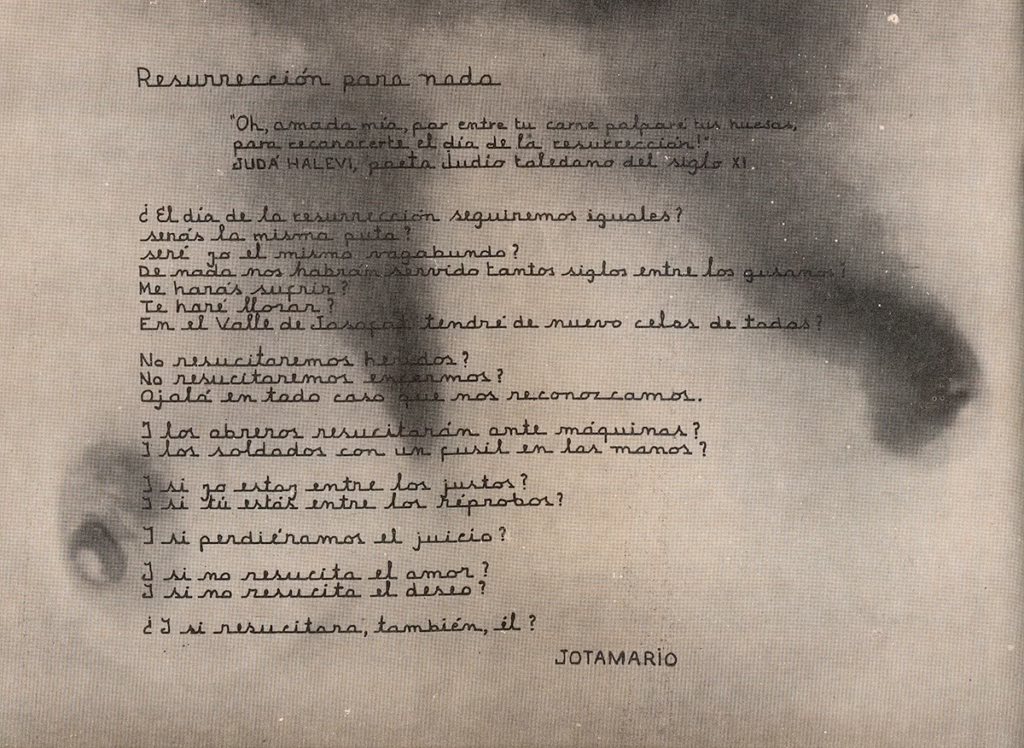 Resurrección para nada
"Oh, amada mía, por entre tu carne palparé tus huesos,
para reconocerte el día de la resurrección!"
JUDÁ HALEVI, poeta Judío toledano del siglo XI.
¿El día de la resurrección seguiremos iguales?
serás la misma puta?
seré yo el mismo vagabundo?
De nada nos habrán servido tantos siglos entre los gusanos?
Me harás sufrir?
Te haré llorar?
En el Valle de Josafat tendré de nuevo celos de todos?
No resucitaremos heridos?
No resucitaremos enfermos?
Ojalá en todo caso que nos reconozcamos.
I los obreros resucitarán ante máquinas?
I los soldados con un fusil en las manos?
I si yo estoy entre los justos?
I si tú estás entre los réprobos?
I si perdiéramos el juicio?
I si no resucita el amor?
I si no resucita el deseo?
¿I si resucitara, también, él?
JOTAMARIO